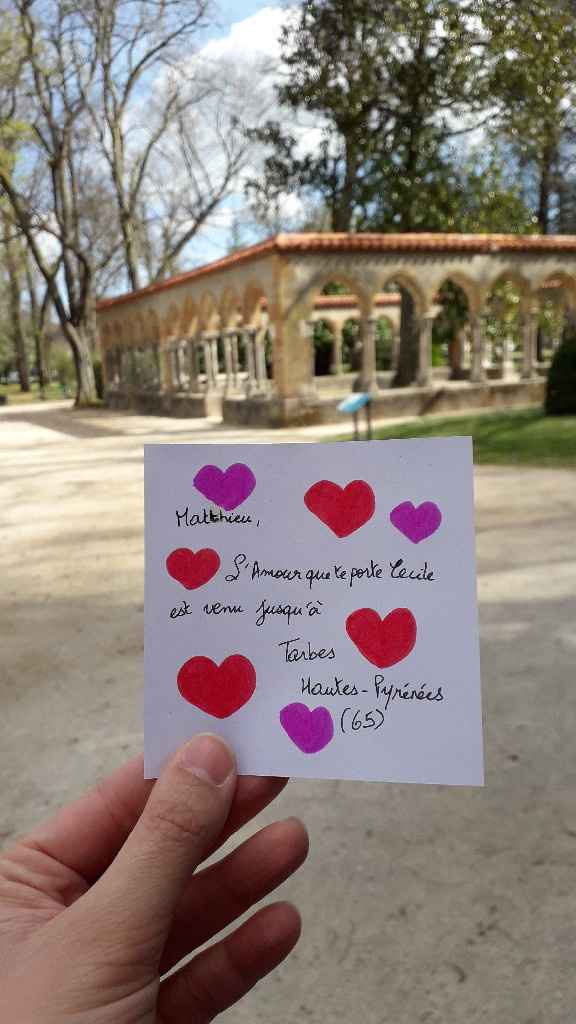 Matthieu,
L'Amour que te porte Cécile
est venu jusqu'à
Tarbes
Hautes-Pyrénées
(65)